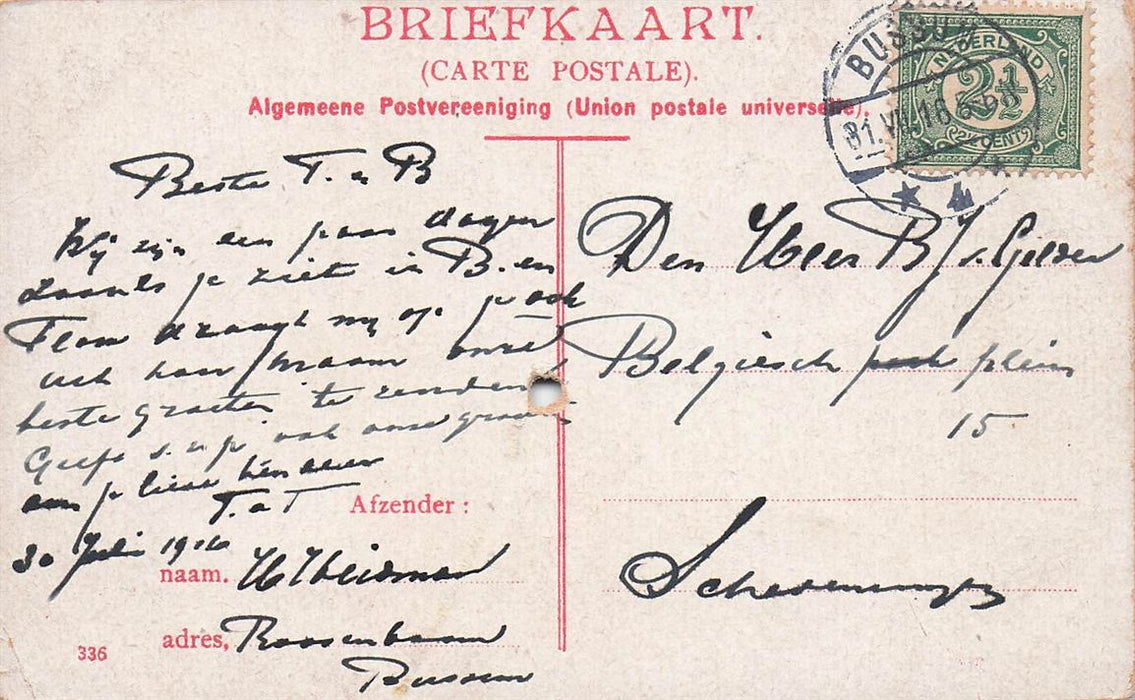 BRIEFKAART.
(CARTE POSTALE).
Algemeene Postvereeniging (Union postale universelle).
BUSSUM
31.VII.16
4
NEDERLAND
2½
Beste T. e B
Wij zijn een paar dagen
zooals je ziet in B. en
Flora draagt mij op je ook
uit haar naam onze
beste groeten te zenden
Geeft s.v.p. ook onze groeten
aan je lieve kinderen
T. a T
30 Juli 1916
Afzender:
naam.
adres, Roosenbaum
Bussum
336
Den Heer B J v. Gelder
Belgiesch park plein
15
Scheveningen